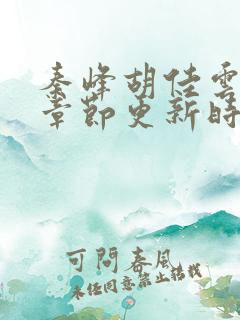 秦峰胡佳雲
章節更新時
可問春風
未经同意禁止转载